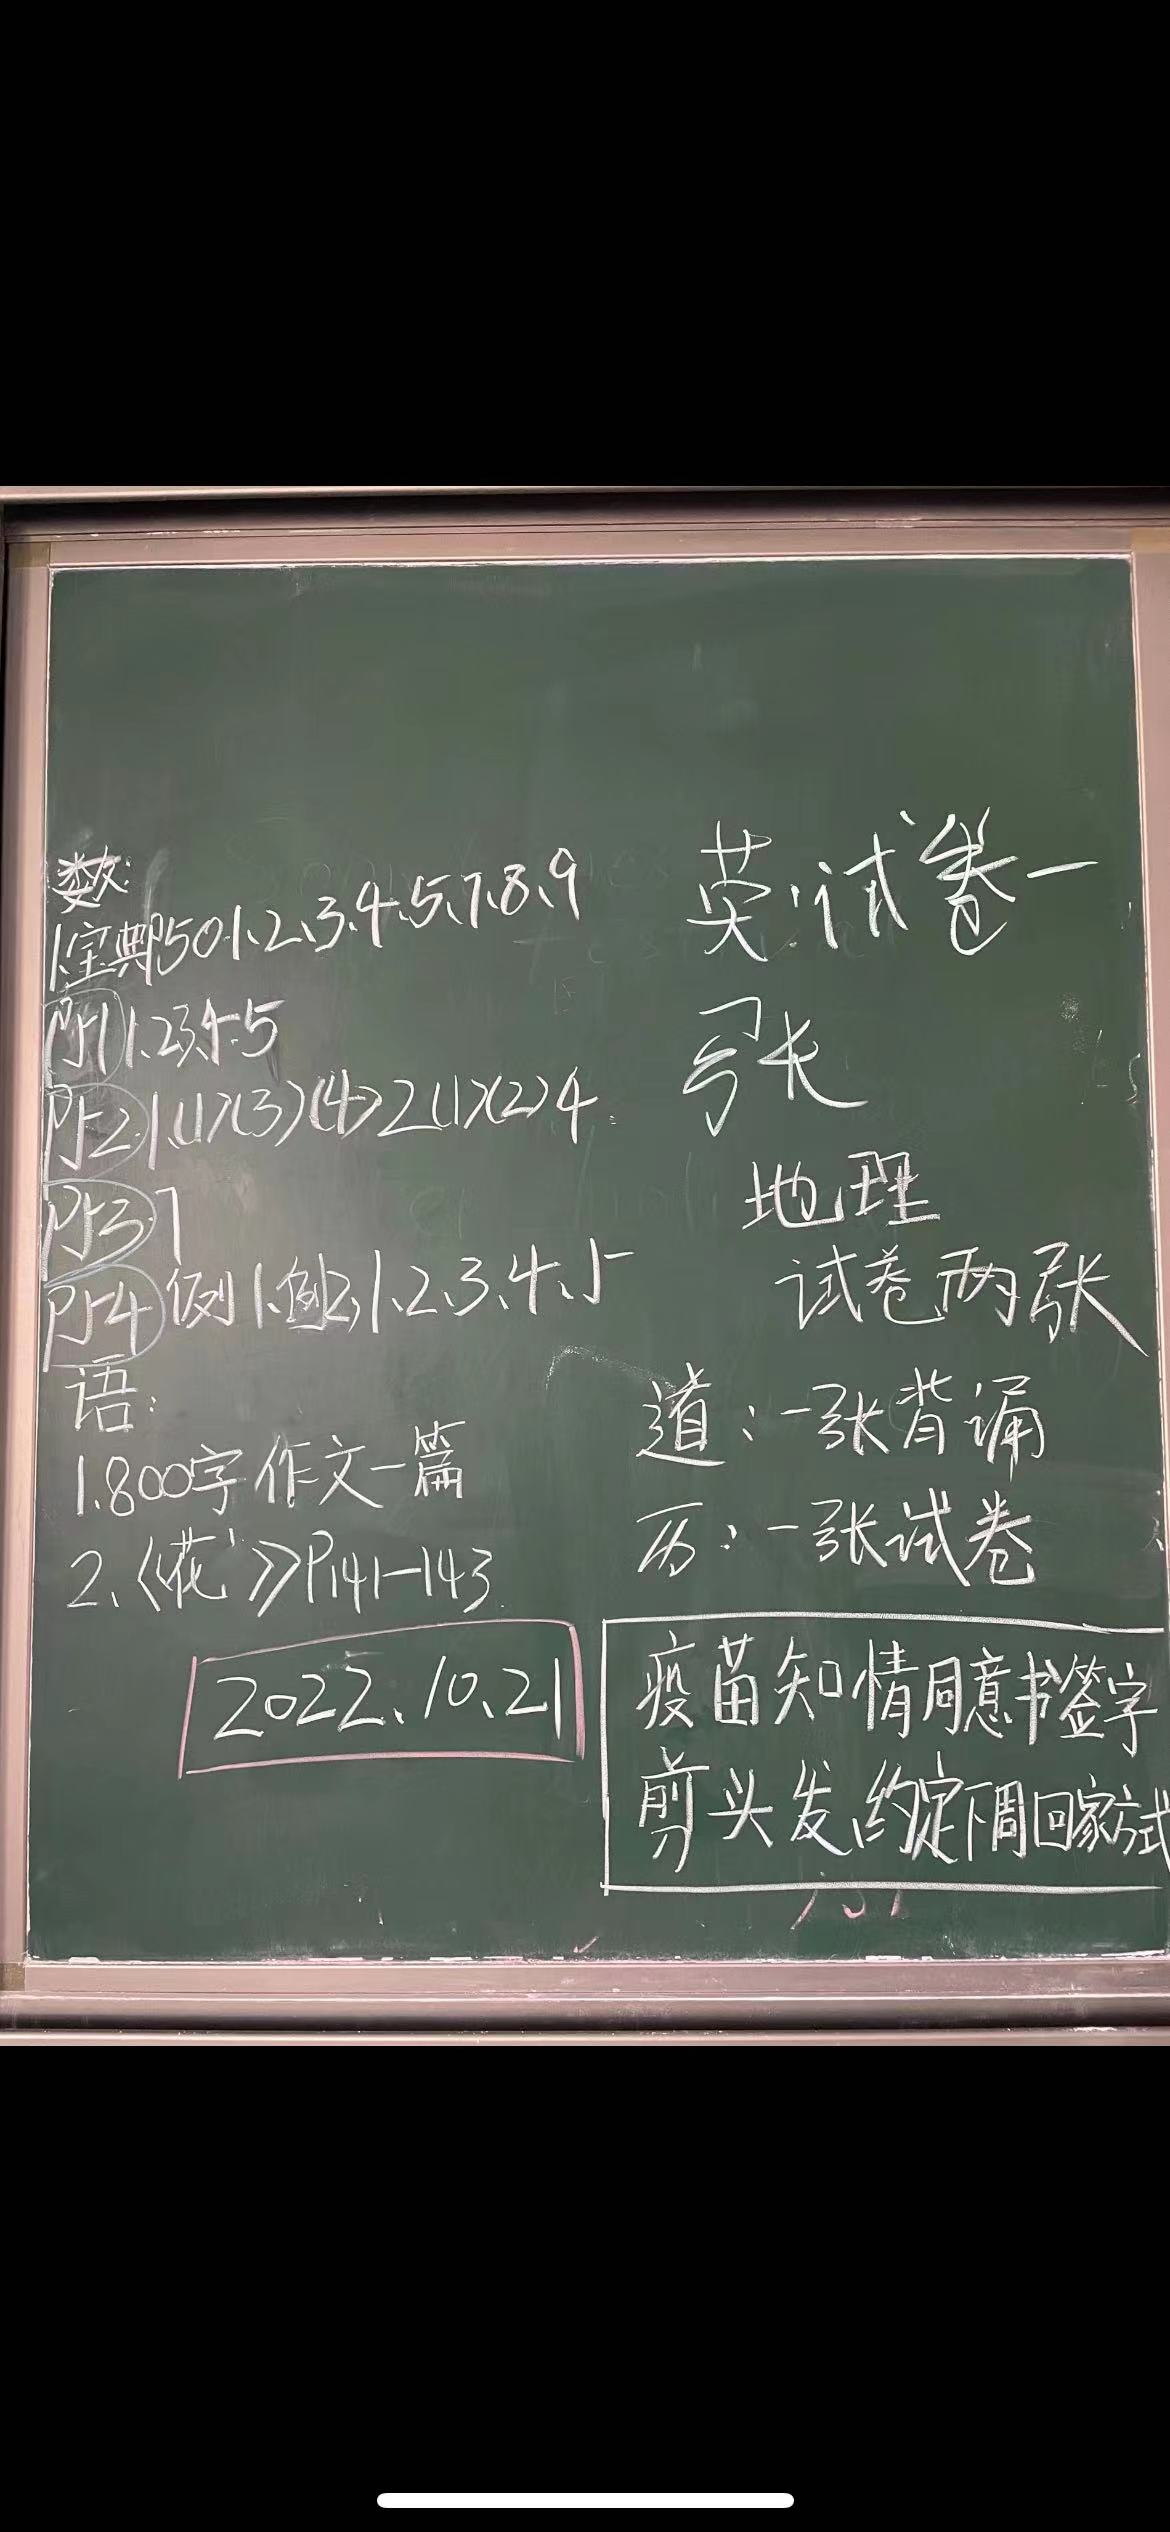 数:
1.宝典P50.1、2、3、4、5、7、8、9
P51 1.2.3.4.5
P52.1.(1)(3)(4)2(1)(2)4
P53.7
P54 例1.例2,1.2.3.4.5
语:
1.800字作文一篇
2.《花》P141-143
2022.10.21
英:试卷一
张
地理
试卷两张
道:一张背诵
历:一张试卷
疫苗知情同意书签字
剪头发、约定下周回家方式